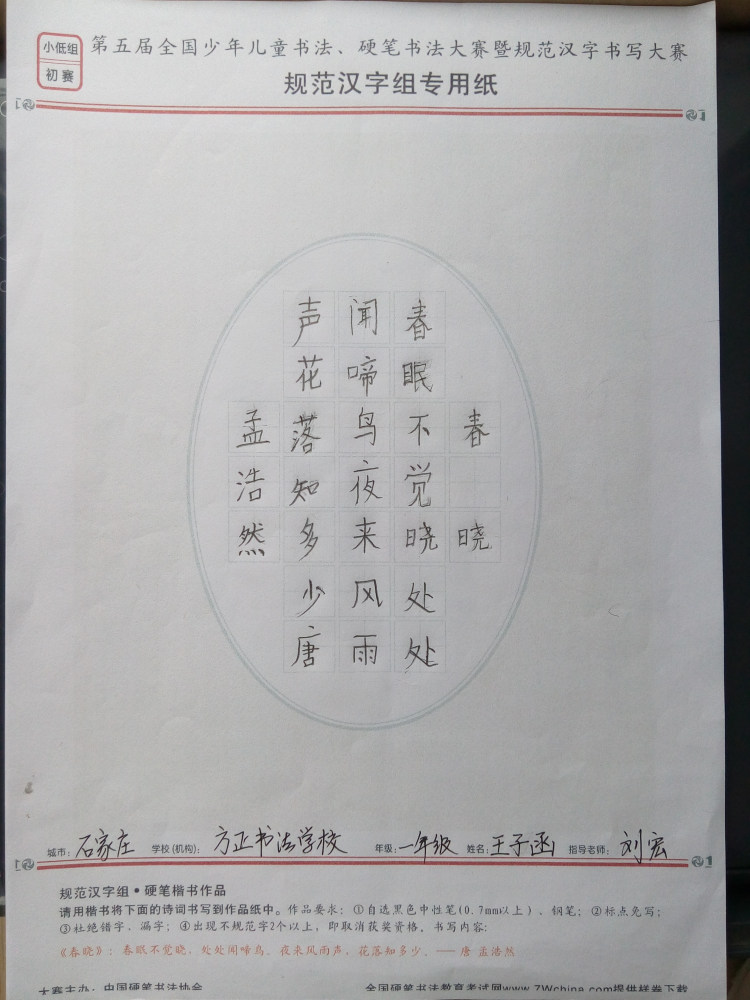 小低组
初赛
第五届全国少年儿童书法、硬笔书法大赛暨规范汉字书写大赛
规范汉字组专用纸
春晓
春眠不觉晓处处
闻啼鸟夜来风雨
声花落知多少唐
孟浩然
城市：石家庄 学校(机构)：方正书法学校 年级：一年级 姓名：王子函 指导老师：刘宏
规范汉字组·硬笔楷书作品
请用楷书将下面的诗词书写到作品纸中。作品要求：①自选黑色中性笔(0.7mm以上)、钢笔；②标点免写；
③杜绝错字、漏字；④出现不规范字2个以上，即取消获奖资格。书写内容：
《春晓》：春眠不觉晓，处处闻啼鸟。夜来风雨声，花落知多少。——唐 孟浩然
大赛主办：中国硬笔书法协会 全国硬笔书法教育考试网www.7Wchina.com提供样卷下载